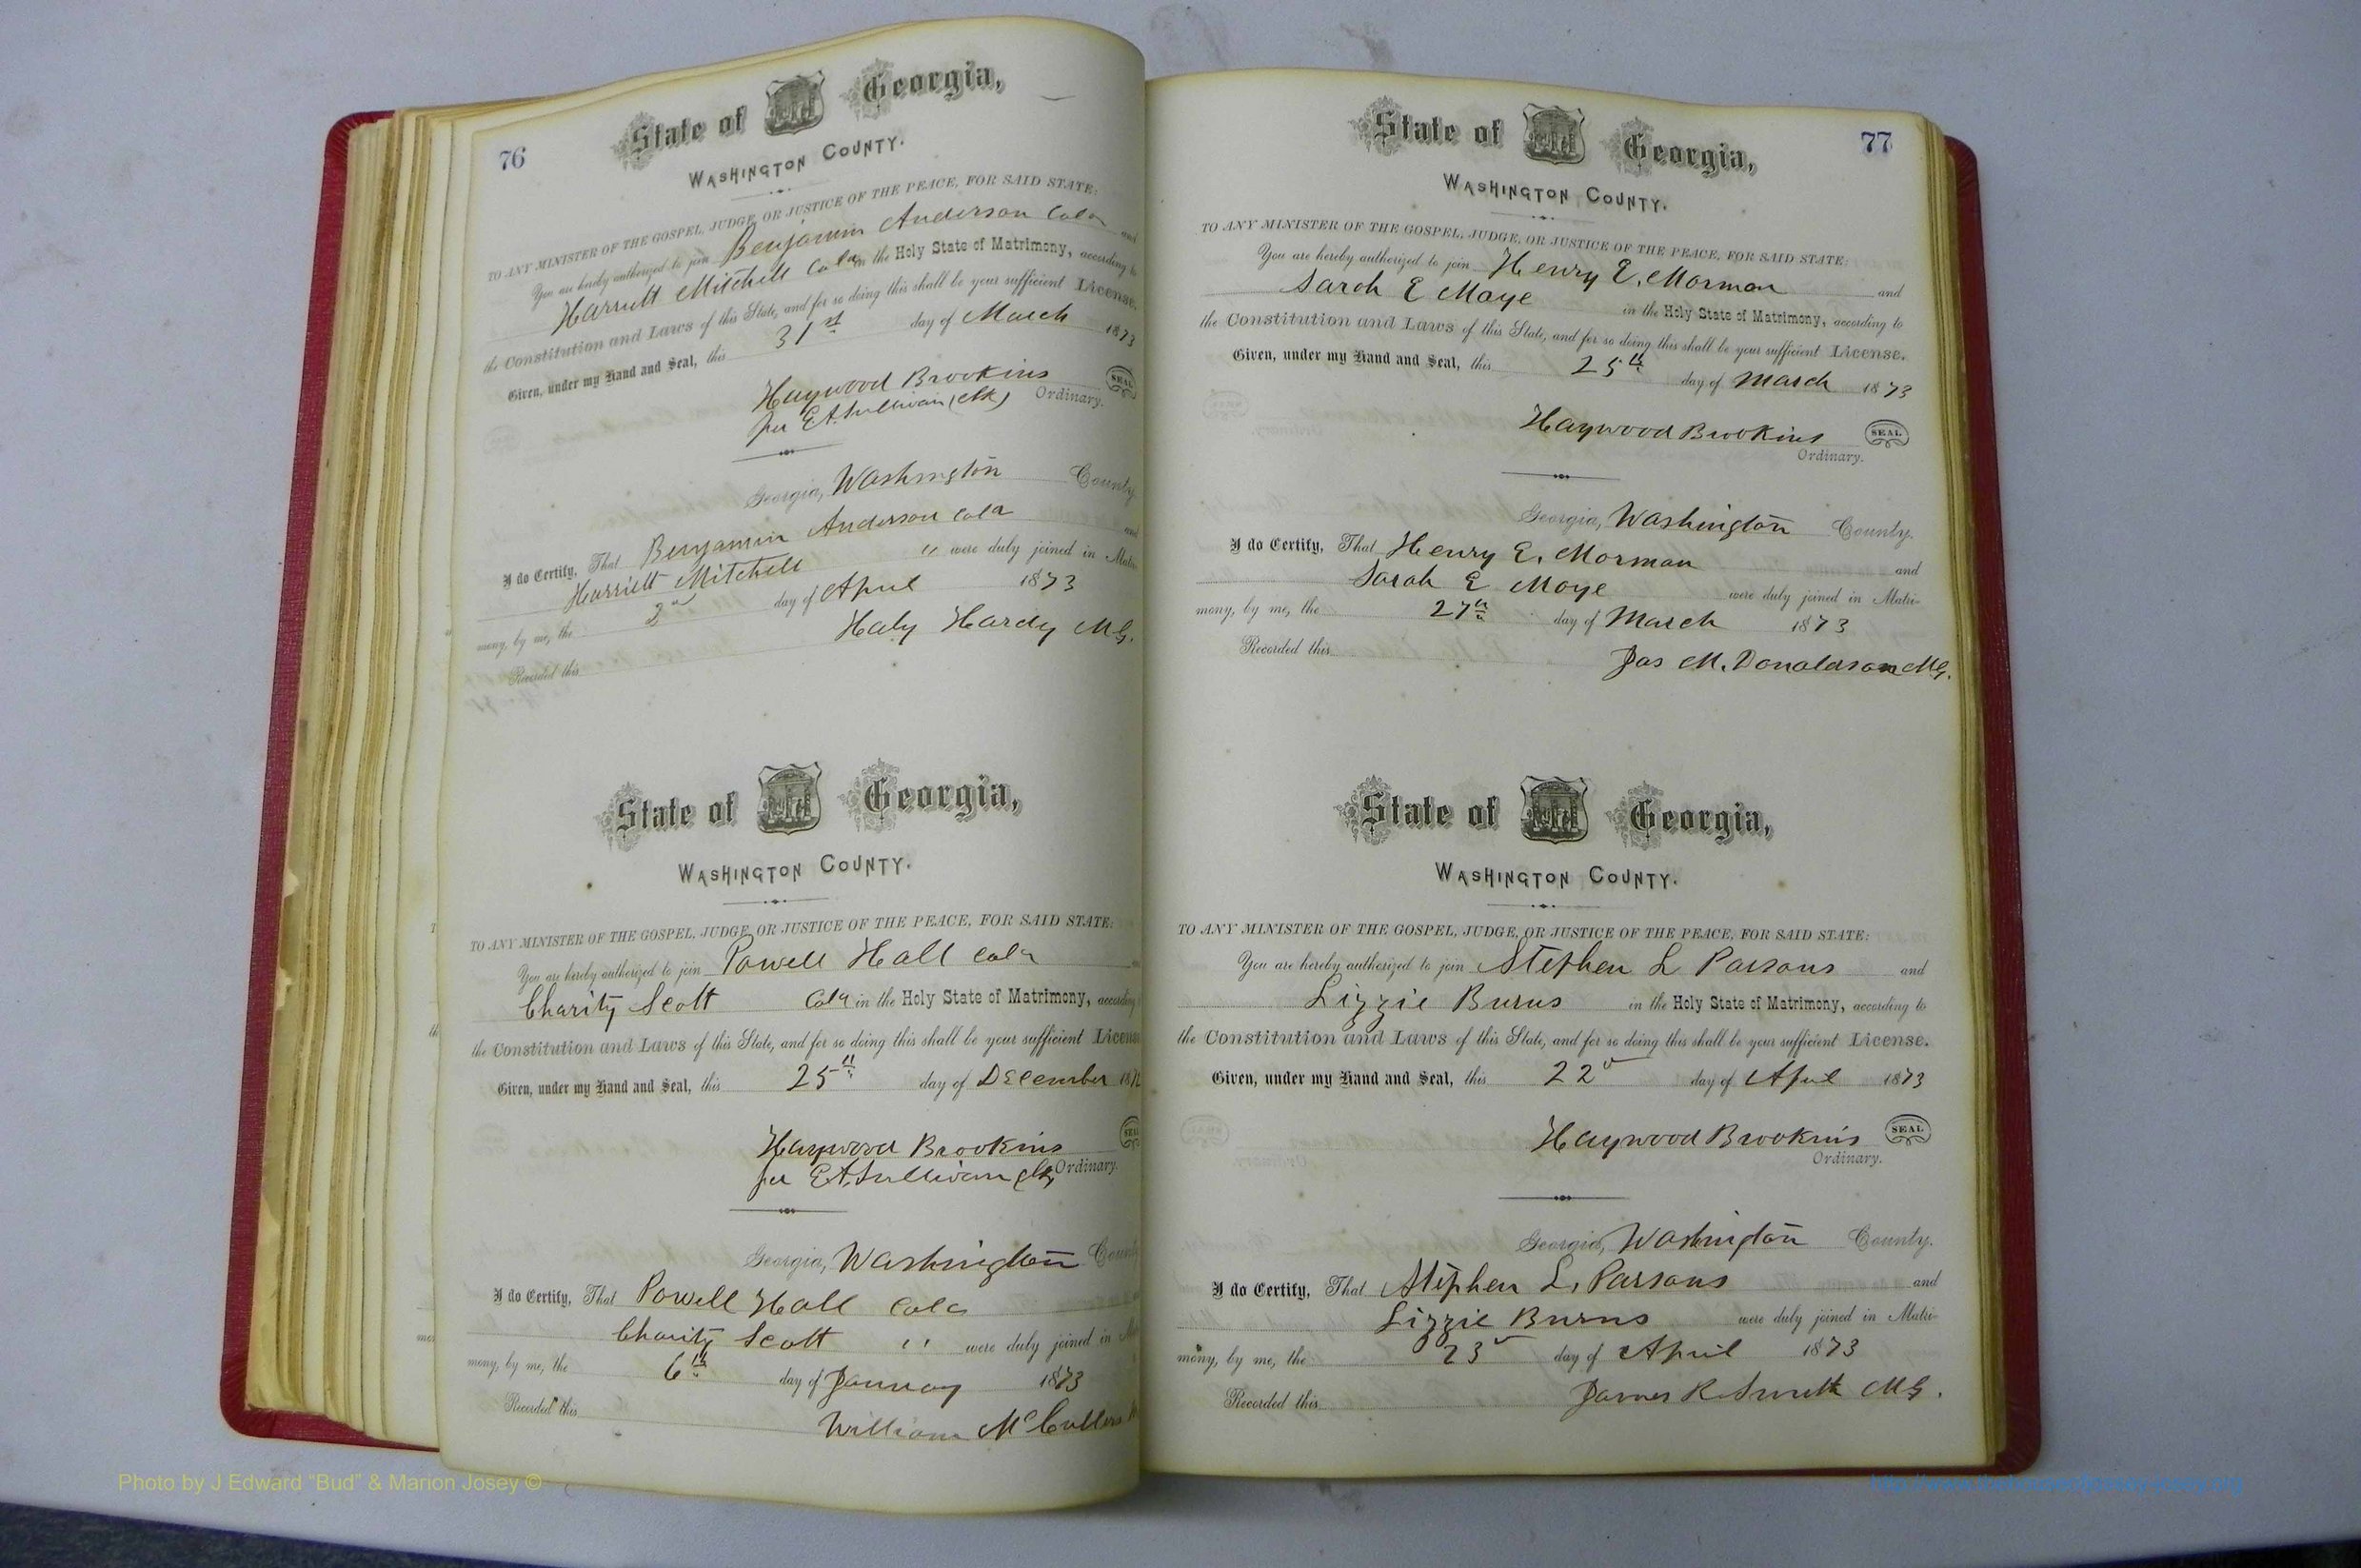 76
State of Georgia,
WASHINGTON COUNTY.
TO ANY MINISTER OF THE GOSPEL, JUDGE, OR JUSTICE OF THE PEACE, FOR SAID STATE:
You are hereby authorized to join Benjamin Anderson Cold and
Harriett Mitchell Cold in the Holy State of Matrimony, according to
the Constitution and Laws of this State, and for so doing this shall be your sufficient License.
Given, under my Hand and Seal, this 31st day of March 1873
Haywood Brookins SEAL
per E A Sullivan (Clk) Ordinary.
Georgia, Washington County
I do Certify, That Benjamin Anderson Cold and
Harriett Mitchell " were duly joined in Matri-
mony, by me, the day of April 1873
Recorded this Haly Hardy M G.
State of Georgia,
WASHINGTON COUNTY.
TO ANY MINISTER OF THE GOSPEL, JUDGE, OR JUSTICE OF THE PEACE, FOR SAID STATE:
You are hereby authorized to join Powell Hall Cold
Charity Scott Cold in the Holy State of Matrimony, according
the Constitution and Laws of this State, and for so doing this shall be your sufficient License
Given, under my Hand and Seal, this 25th day of December 1872
Haywood Brookins SEAL
per E A Sullivan Clk Ordinary.
Georgia, Washington County
I do Certify, That Powell Hall Cold
Charity Scott " were duly joined in
mony, by me, the 6th day of January 1873
Recorded this William McCullers
77
State of Georgia,
WASHINGTON COUNTY.
TO ANY MINISTER OF THE GOSPEL, JUDGE, OR JUSTICE OF THE PEACE, FOR SAID STATE:
You are hereby authorized to join Henry E. Morman and
Sarah E Maye in the Holy State of Matrimony, according to
the Constitution and Laws of this State, and for so doing this shall be your sufficient License.
Given, under my Hand and Seal, this 25th day of March 1873
Haywood Brookins SEAL
Ordinary.
Georgia, Washington County.
I do Certify, That Henry E. Morman and
Sarah E Moye were duly joined in Matri-
mony, by me, the 27th day of March 1873
Recorded this Jas M. Donaldson M G.
State of Georgia,
WASHINGTON COUNTY.
TO ANY MINISTER OF THE GOSPEL, JUDGE, OR JUSTICE OF THE PEACE, FOR SAID STATE:
You are hereby authorized to join Stephen L Parsons and
Lizzie Burns in the Holy State of Matrimony, according to
the Constitution and Laws of this State, and for so doing this shall be your sufficient License.
Given, under my Hand and Seal, this 22d day of April 1873
Haywood Brookins SEAL
Ordinary.
Georgia, Washington County.
I do Certify, That Stephen L. Parsons and
Lizzie Burns were duly joined in Matri-
mony, by me, the 23d day of April 1873
Recorded this James R Smith M G.
Photo by J Edward "Bud" & Marion Josey ©